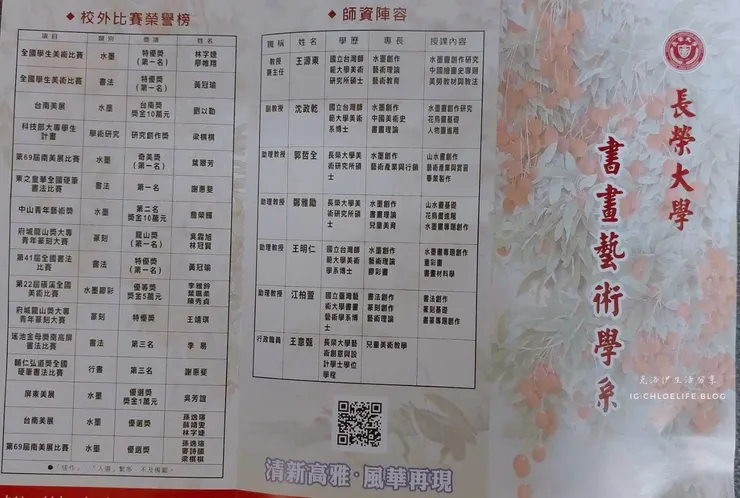 ● 校外比賽榮譽榜
項目 類別 獎項 姓名
全國學生美術比賽 水墨 特優獎(第一名) 林字婕 廖唯翔
全國學生美術比賽 書法 特優獎(第一名) 黃冠瑜
台南美展 水墨 台南獎 獎金10萬元 劉以勤
科技部大專學生計畫 學術研究 研究創作獎 梁棋棋
第69屆南美展比賽 水墨 奇美獎(第一名)
東之皇華全國硬筆書法比賽 書法 第一名 謝惠斐
中山青年藝術獎 水墨 第二名 獎金10萬元 詹榮輝
府城龍山獎大專青年篆刻大賽 篆刻 龍山獎(第一名) 吳霖旭 林冠賢
第41屆全國書法比賽 書法 特優獎(第一名) 黃冠瑜
第22屆磺溪全國美術比賽 水墨膠彩 優等獎 獎金5萬元
府城龍山獎大專青年篆刻大賽 篆刻 特優獎 王靖琪
瑤池金母獎南高屏書法比賽 書法 第三名 李易
輔仁弘道獎全國硬筆書法比賽 行書 第三名 謝惠斐
屏東美展 水墨 優選獎 獎金1萬元 吳芳誼
台南美展 水墨 優選獎 孫逸臻 薛靖雯 林字婕
第69屆南美展比賽 水墨 優選獎 孫逸臻 麥詩韻 梁棋棋
●「佳作」、「入選」繁多,不及備載。
● 師資陣容
職稱 姓名 學歷 專長 授課內容
教授兼主任 王源東 國立台灣師範大學美術研究所碩士 水墨創作 藝術理論 藝術教育 水墨畫創作研究 中國繪畫史專題 美勞教材與教法
副教授 沈政乾 國立台灣師範大學美術系博士 水墨創作 中國美術史 書畫理論 水墨畫創作研究 花鳥畫基礎 人物畫進階
助理教授 郭哲全 長榮大學美術研究所碩士 水墨創作 藝術產業與行銷 山水畫創作 藝術產業與實習 畢業製作
助理教授 鄭雅勵 長榮大學美術研究所碩士 水墨創作 書畫理論 兒童美育 山水畫基礎 花鳥畫進階 水墨畫專題創作
助理教授 王明仁 國立台灣師範大學美術學系博士 水墨創作 藝術理論 膠彩畫 水墨畫專題創作 重彩畫 書畫材料學
助理教授 江柏萱 國立臺灣藝術大學書畫藝術學系博士 書法創作 篆刻創作 藝術理論 書法創作 篆刻基礎 書篆專題創作
行政職員 王意甄 長榮大學藝術創意與設計學士學位學程 兒童美術教學
清新高雅・風華再現
長榮大學
書畫藝術學系
克洛伊生活分享
IG:CHLOELIFE.BLOG